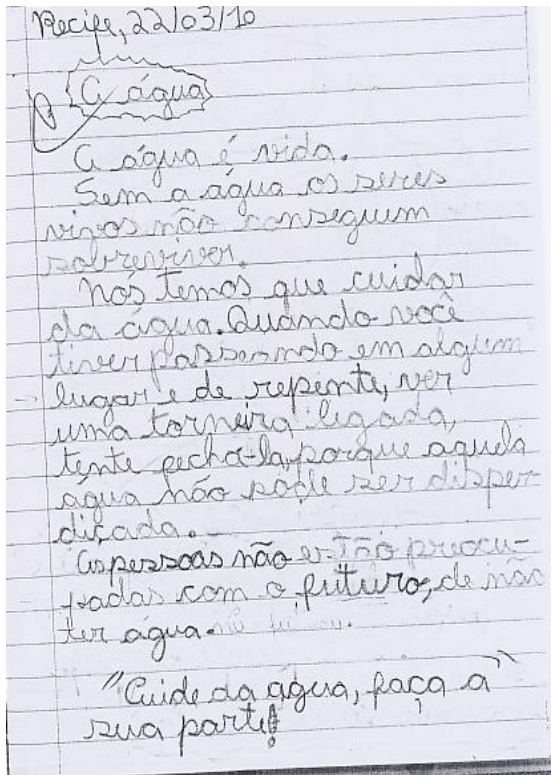 Recife, 22/03/10
A água
A água é vida.
Sem a água os seres
vivos não conseguem
sobreviver.
Nós temos que cuidar
da água. Quando você
tiver passeando em algum
lugar e de repente, ver
uma torneira ligada,
tente fechá-la, porque aquela
água não pode ser disper-
diçada.
As pessoas não estão preocu-
padas com o futuro, de não
ter água.
"Cuide da água, faça a"
sua parte!